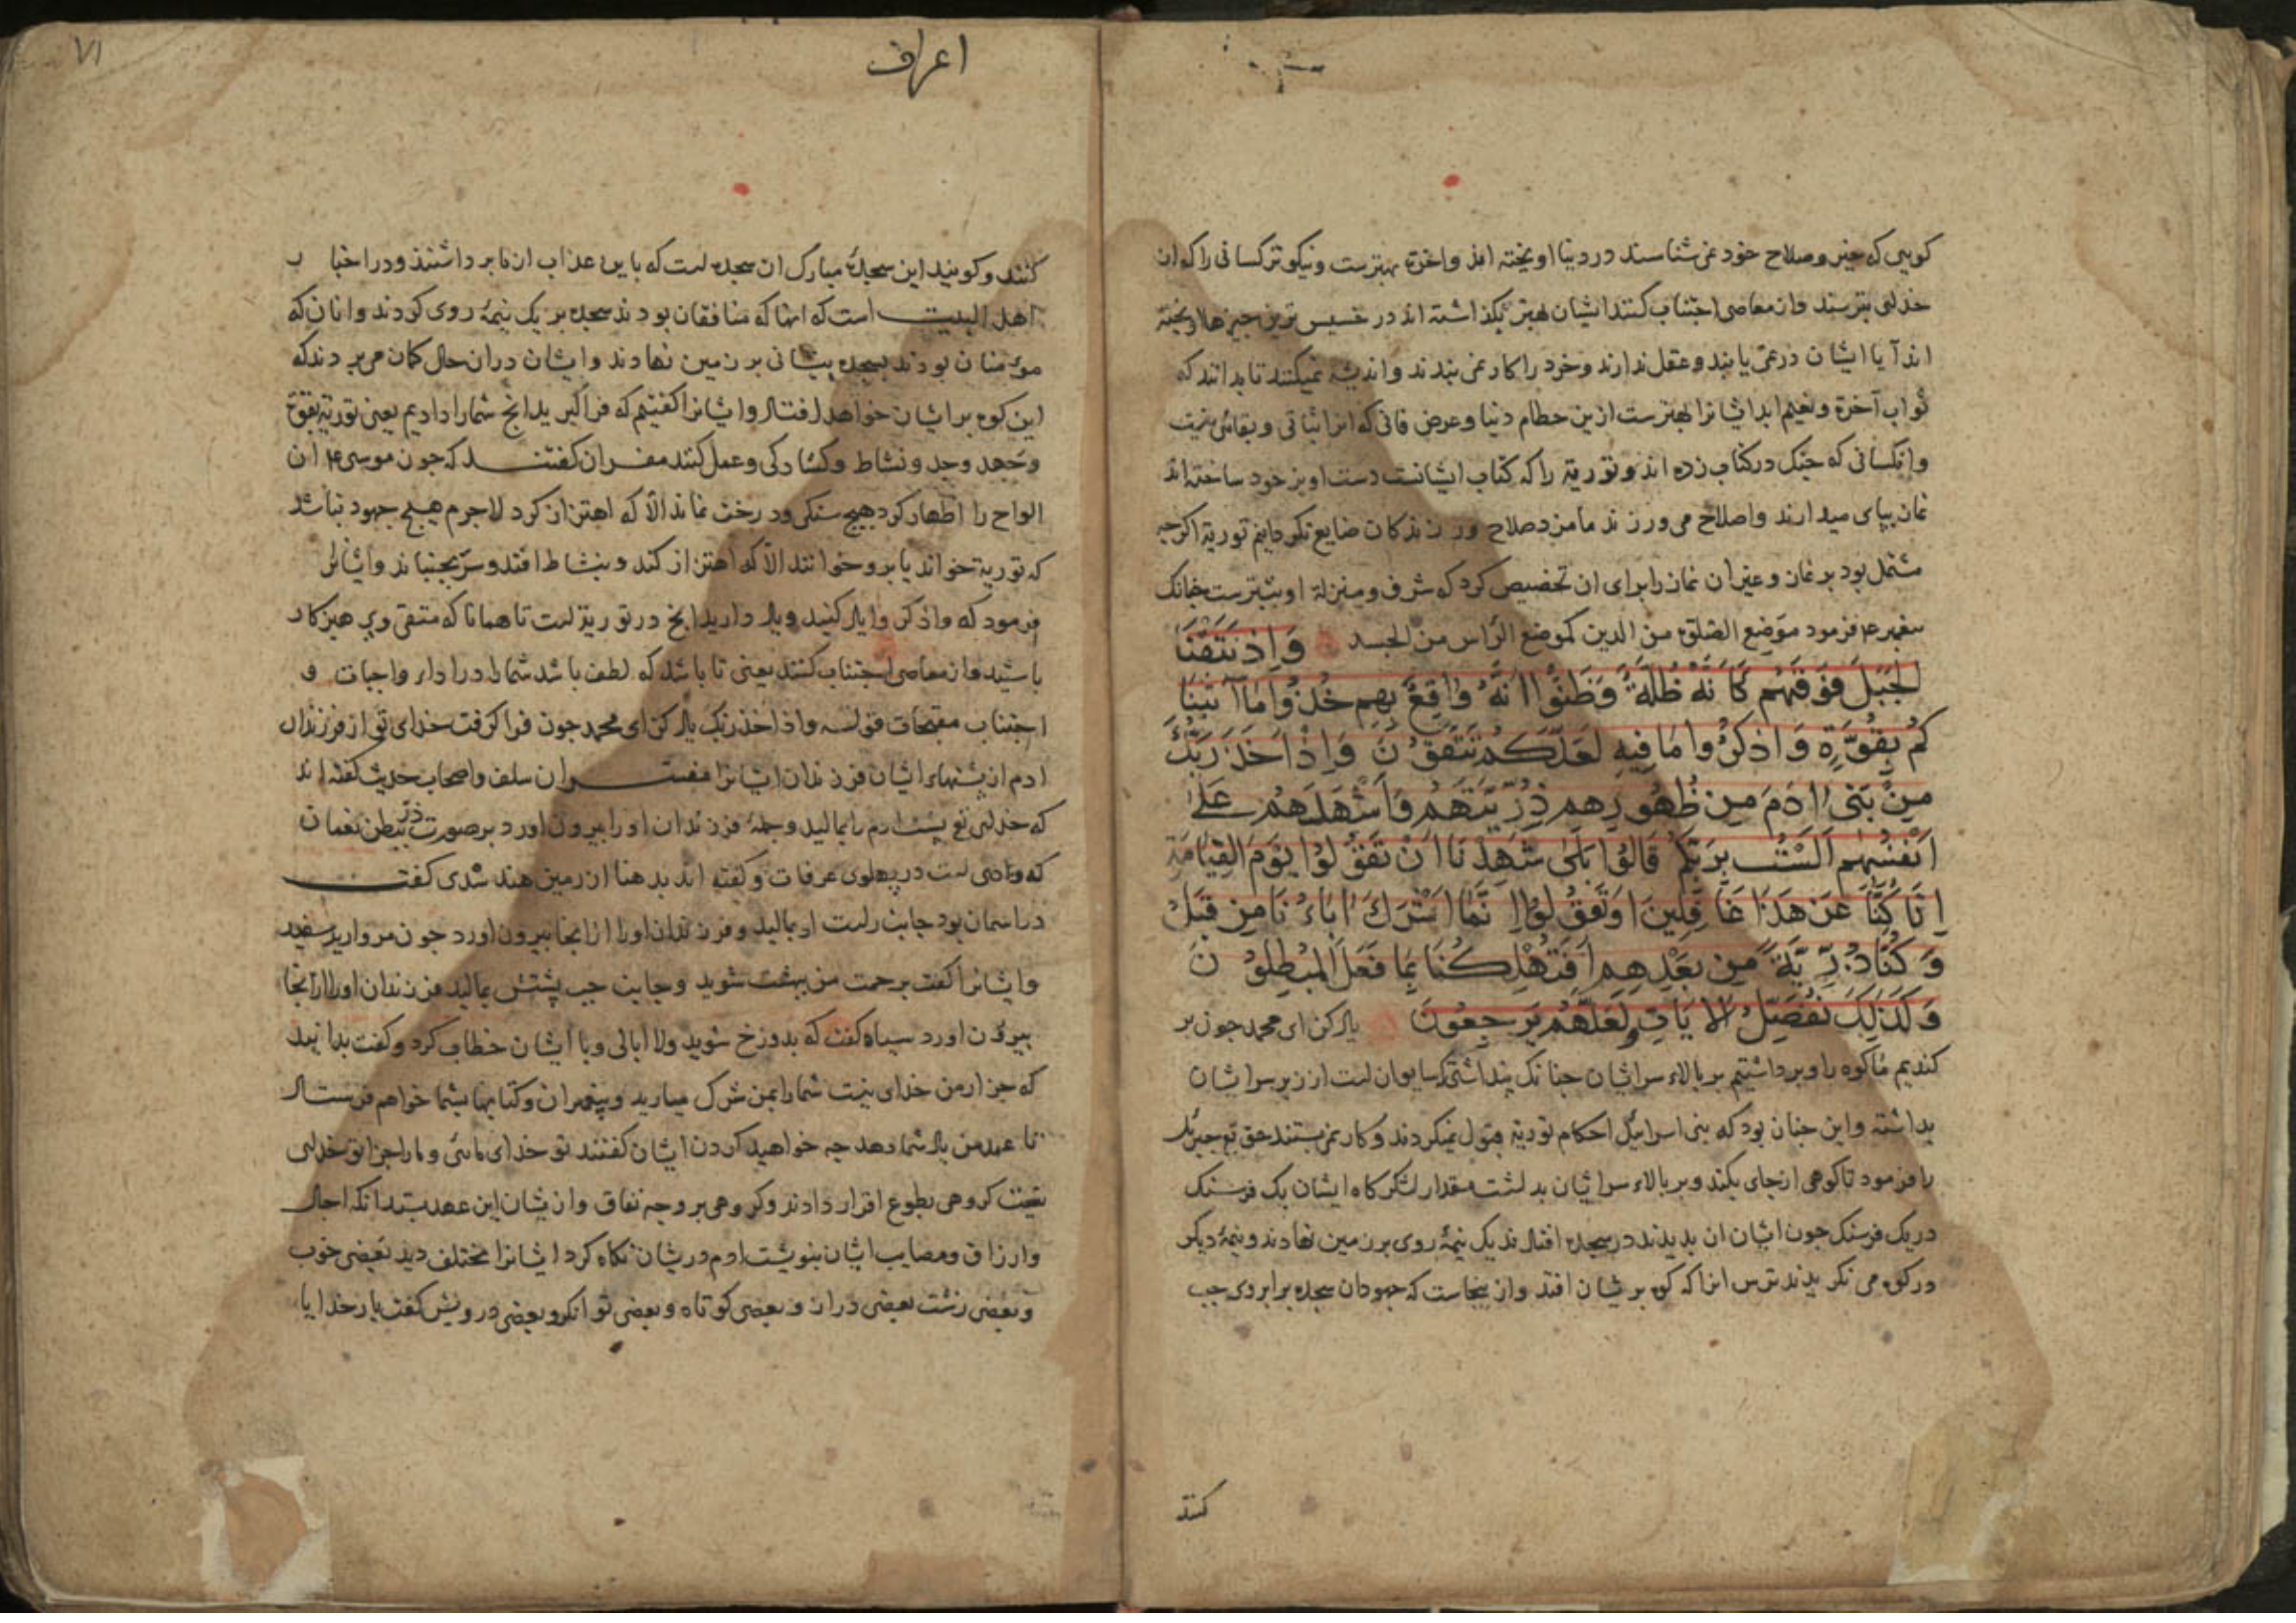 کویی که خیر و صلاح خود نمی شناسند در دنیا اویخته اند و اخرة بهترست و نیکوتر کسانی را که از
خدای بترسند و از معاصی اجتناب کنند ایشان بهتر بگذاشته اند در خسیس ترین چیزها اویخته
اند آیا ایشان در نمی یابند و عقل ندارند و خرد را کار نمی بندند و اندیشه نمیکنند تا بدانند که
ثواب آخرة و نعیم ابد ایشانرا بهترست ازین حطام دنیا و عرض فانی که انرا ثباتی و بقائی نیست
و انکسانی که چنک در کتاب زده اند و توریة را که کتاب ایشانست دست اویز خود ساخته اند
نماز بپای میدارند و اصلاح می ورزند ما مزد صلاح ورزندکان ضایع نکردانیم توریة اکرچه
مشتمل بود بر نماز و غیر ان نماز را برای ان تخصیص کرد که شرف و منزلة او بیشترست چنانک
فرمود موضع الصلوة من الدین کموضع الرأس من الجسد وَاِذ نَتَقْنَا
الجَبَلَ فَوْقَهُم كَاَنَّهُ ظُلَّةٌ وَظَنُّوا اَنَّهُ وَاقِعٌ بِهِم خُذُوا مَا آتَينَا
كُم بِقُوَّةٍ وَاذكُرُوا مَا فِيهِ لَعَلَّكُم تَتَّقُونَ وَاِذْ اَخَذَ رَبُّكَ
مِن بَنِى ادَمَ مِن ظُهُورِهِم ذُرِّيَّتَهُم وَاَشْهَدَهُم عَلَى
اَنْفُسِهِم اَلَسْتُ بِرَبِّكُم قَالُوا بَلَى شَهِدْنَا اَنْ تَقُولُوا يَوْمَ القِيَامَةِ
اِنَّا كُنَّا عَن هَذَا غَافِلِينَ اَوْ تَقُولُوا اِنَّمَا اَشْرَكَ ابَاءُنَا مِن قَبْلُ
وَكُنَّا ذُرِّيَّةً مِن بَعْدِهِم اَفَتُهْلِكُنَا بِمَا فَعَلَ المُبْطِلُونَ
وَكَذَلِكَ نُفَصِّلُ الايَاتِ وَلَعَلَّهُم يَرجِعُونَ یاد کن ای محمد چون بر
کندیم ما کوه را و برداشتیم بر بالاء سر ایشان چنانک پنداشتی که سایوان است از زبر سر ایشان
بداشته و این چنان بود که بنی اسرائیل احکام توریة قبول نمیکردند و کار نمی بستند حق تع جبرئیل
را فرمود تا کوهی از جای بکند و بر بالاء سر ایشان بداشت مقدار لشکرکاه ایشان یک فرسنک
در یک فرسنک چون ایشان ان بدیدند در سجده افتادند یک نیمۀ روی بر زمین نهادند و نیمۀ دیکر
در کوه می نکریدند ترس انرا که کوه بریشان افتد و از ینجاست که جهودان سجده بر ابروی چپ
کنند
اعراف
۷۱
کنند و کویند این سجدۀ مبارک ان سجده است که باین عذاب از ما برداشتند و در اخبار
اهل البیت است که انها که منافقان بودند سجده بر یک نیمۀ روی کردند و انان که
مؤمنان بودند بسجده پیشانی بر زمین نهادند و ایشان دران حال کمان می بردند که
این کوه بر ایشان خواهد افتاد و ایشانرا کفتیم که فراکیرید انچ شمارا دادیم یعنی توریة بقوّة
و جهد و جد و نشاط و کشادکی و عمل کنند مفسران کفتند که چون موسی ان
الواح را اظهار کرد هیچ سنکی و درخت نماند الّا که اهتزاز کرد لاجرم هیچ جهود نباشد
که توریة خواند یا برو خوانند الّا که اهتزاز کند و بنشاط افتد و سر بجنباند و ایشانرا
فرمود که واذکروا یاد کنید و یاد دارید انچ در توریة است تا همانا که متقی و پرهیزکار
باشید و از معاصی اجتناب کنند یعنی تا باشد که لطف باشد شمارا در اداء واجبات و
اجتناب مقبحات قوله واذ اخذ ربک یاد کن ای محمد چون فرا کرفت خدای تو از فرزندان
ادم از پشتهاء ایشان فرزندان ایشانرا مفسران سلف و اصحاب حدیث کفته اند
که خدای تع پشت ادم را بمالید و جملۀ فرزندان او را بیرون اورد بر صورت ذرّ ببطن نعمان
که وادی است در پهلوی عرفات و کفته اند بدهنا از زمین هند سدی کفت
در اسمان بود جانب راست او بمالید و فرزندان او را از انجا بیرون اورد چون مروارید سفید
و ایشانرا کفت برحمت من ببهشت شوید و جانب چپ پشتش بمالید فرزندان او را از انجا
بیرون اورد سیاه کفت که بدوزخ شوید ولا ابالی و با ایشان خطاب کرد و کفت بدانید
که جز از من خدای نیست شمارا بمن شرک میارید و پیغمبران و کتابها بشما خواهم فرستاد
تا عهد من یاد شما دهد چه خواهید کردن ایشان کفتند تو خدای مائی و مارا جز از تو خدای
نیست کروهی بطوع اقرار دادند و کروهی بر وجه نفاق و از یشان این عهد بستد انکه اجال
و ارزاق و مصایب ایشان بنوشت ادم دریشان نکاه کرد ایشانرا مختلف دید بعضی خوب
و بعضی زشت بعضی دراز و بعضی کوتاه و بعضی توانکر و بعضی درویش کفت بار خدایا